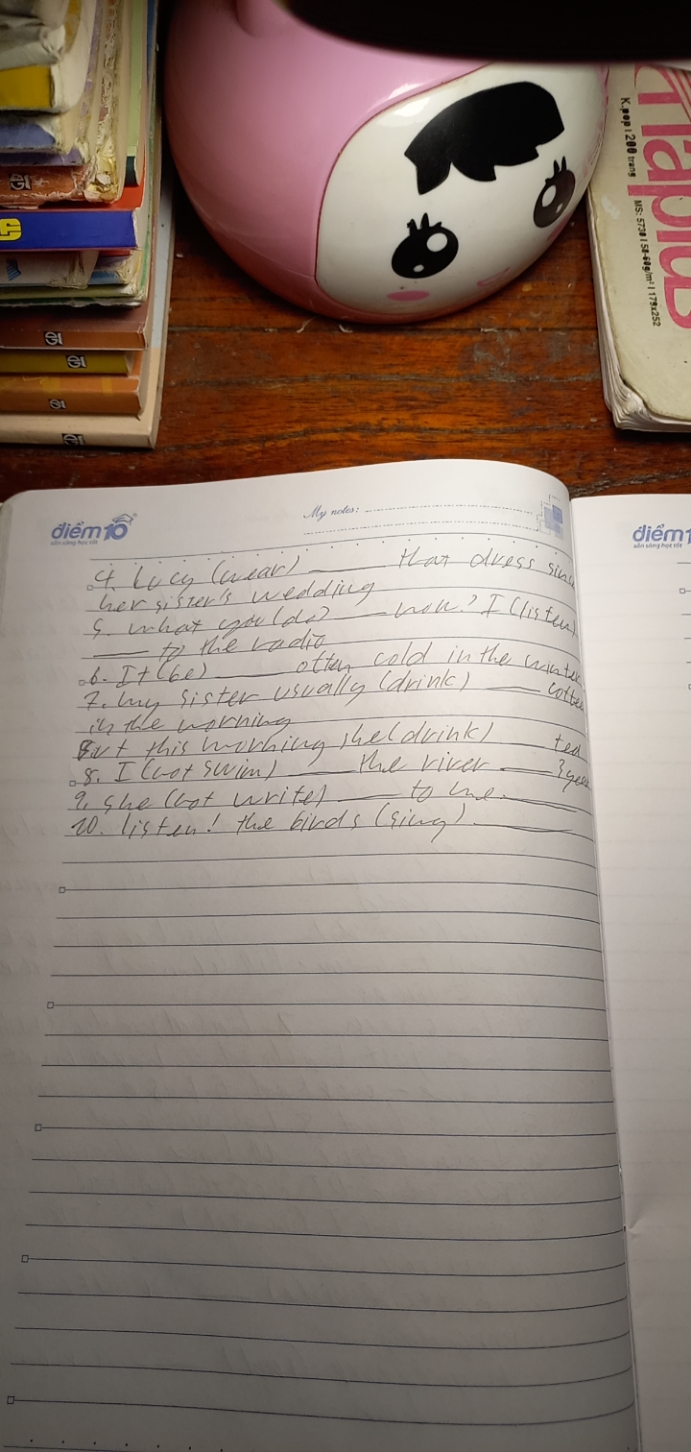 Taplus
K.pop | 200 trang
MS: 5730 | 58-60g/m² | 179x252
điểm 10
sẵn sàng học tốt
My notes:
điểm 1
sẵn sàng học tốt
4. Lucy (wear) ____ that dress sinc
her sister's wedding
5. what you(do) ____ now? I (listen)
____ to the radio
6. It (be) ____ often cold in the winter
7. my sister usually (drink) ____ coffee
in the morning
But this morning she(drink) ____ tea
8. I (not swim) ____ the river ____ 3 year
9. she (not write) ____ to me ____
10. listen! the birds (sing) ____